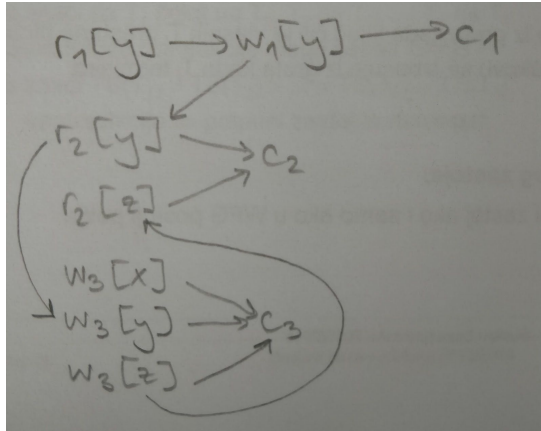 r1[y] → w1[y] → c1
r2[y]
c2
r2[z]
w3[x]
w3[y] → c3
w3[z]